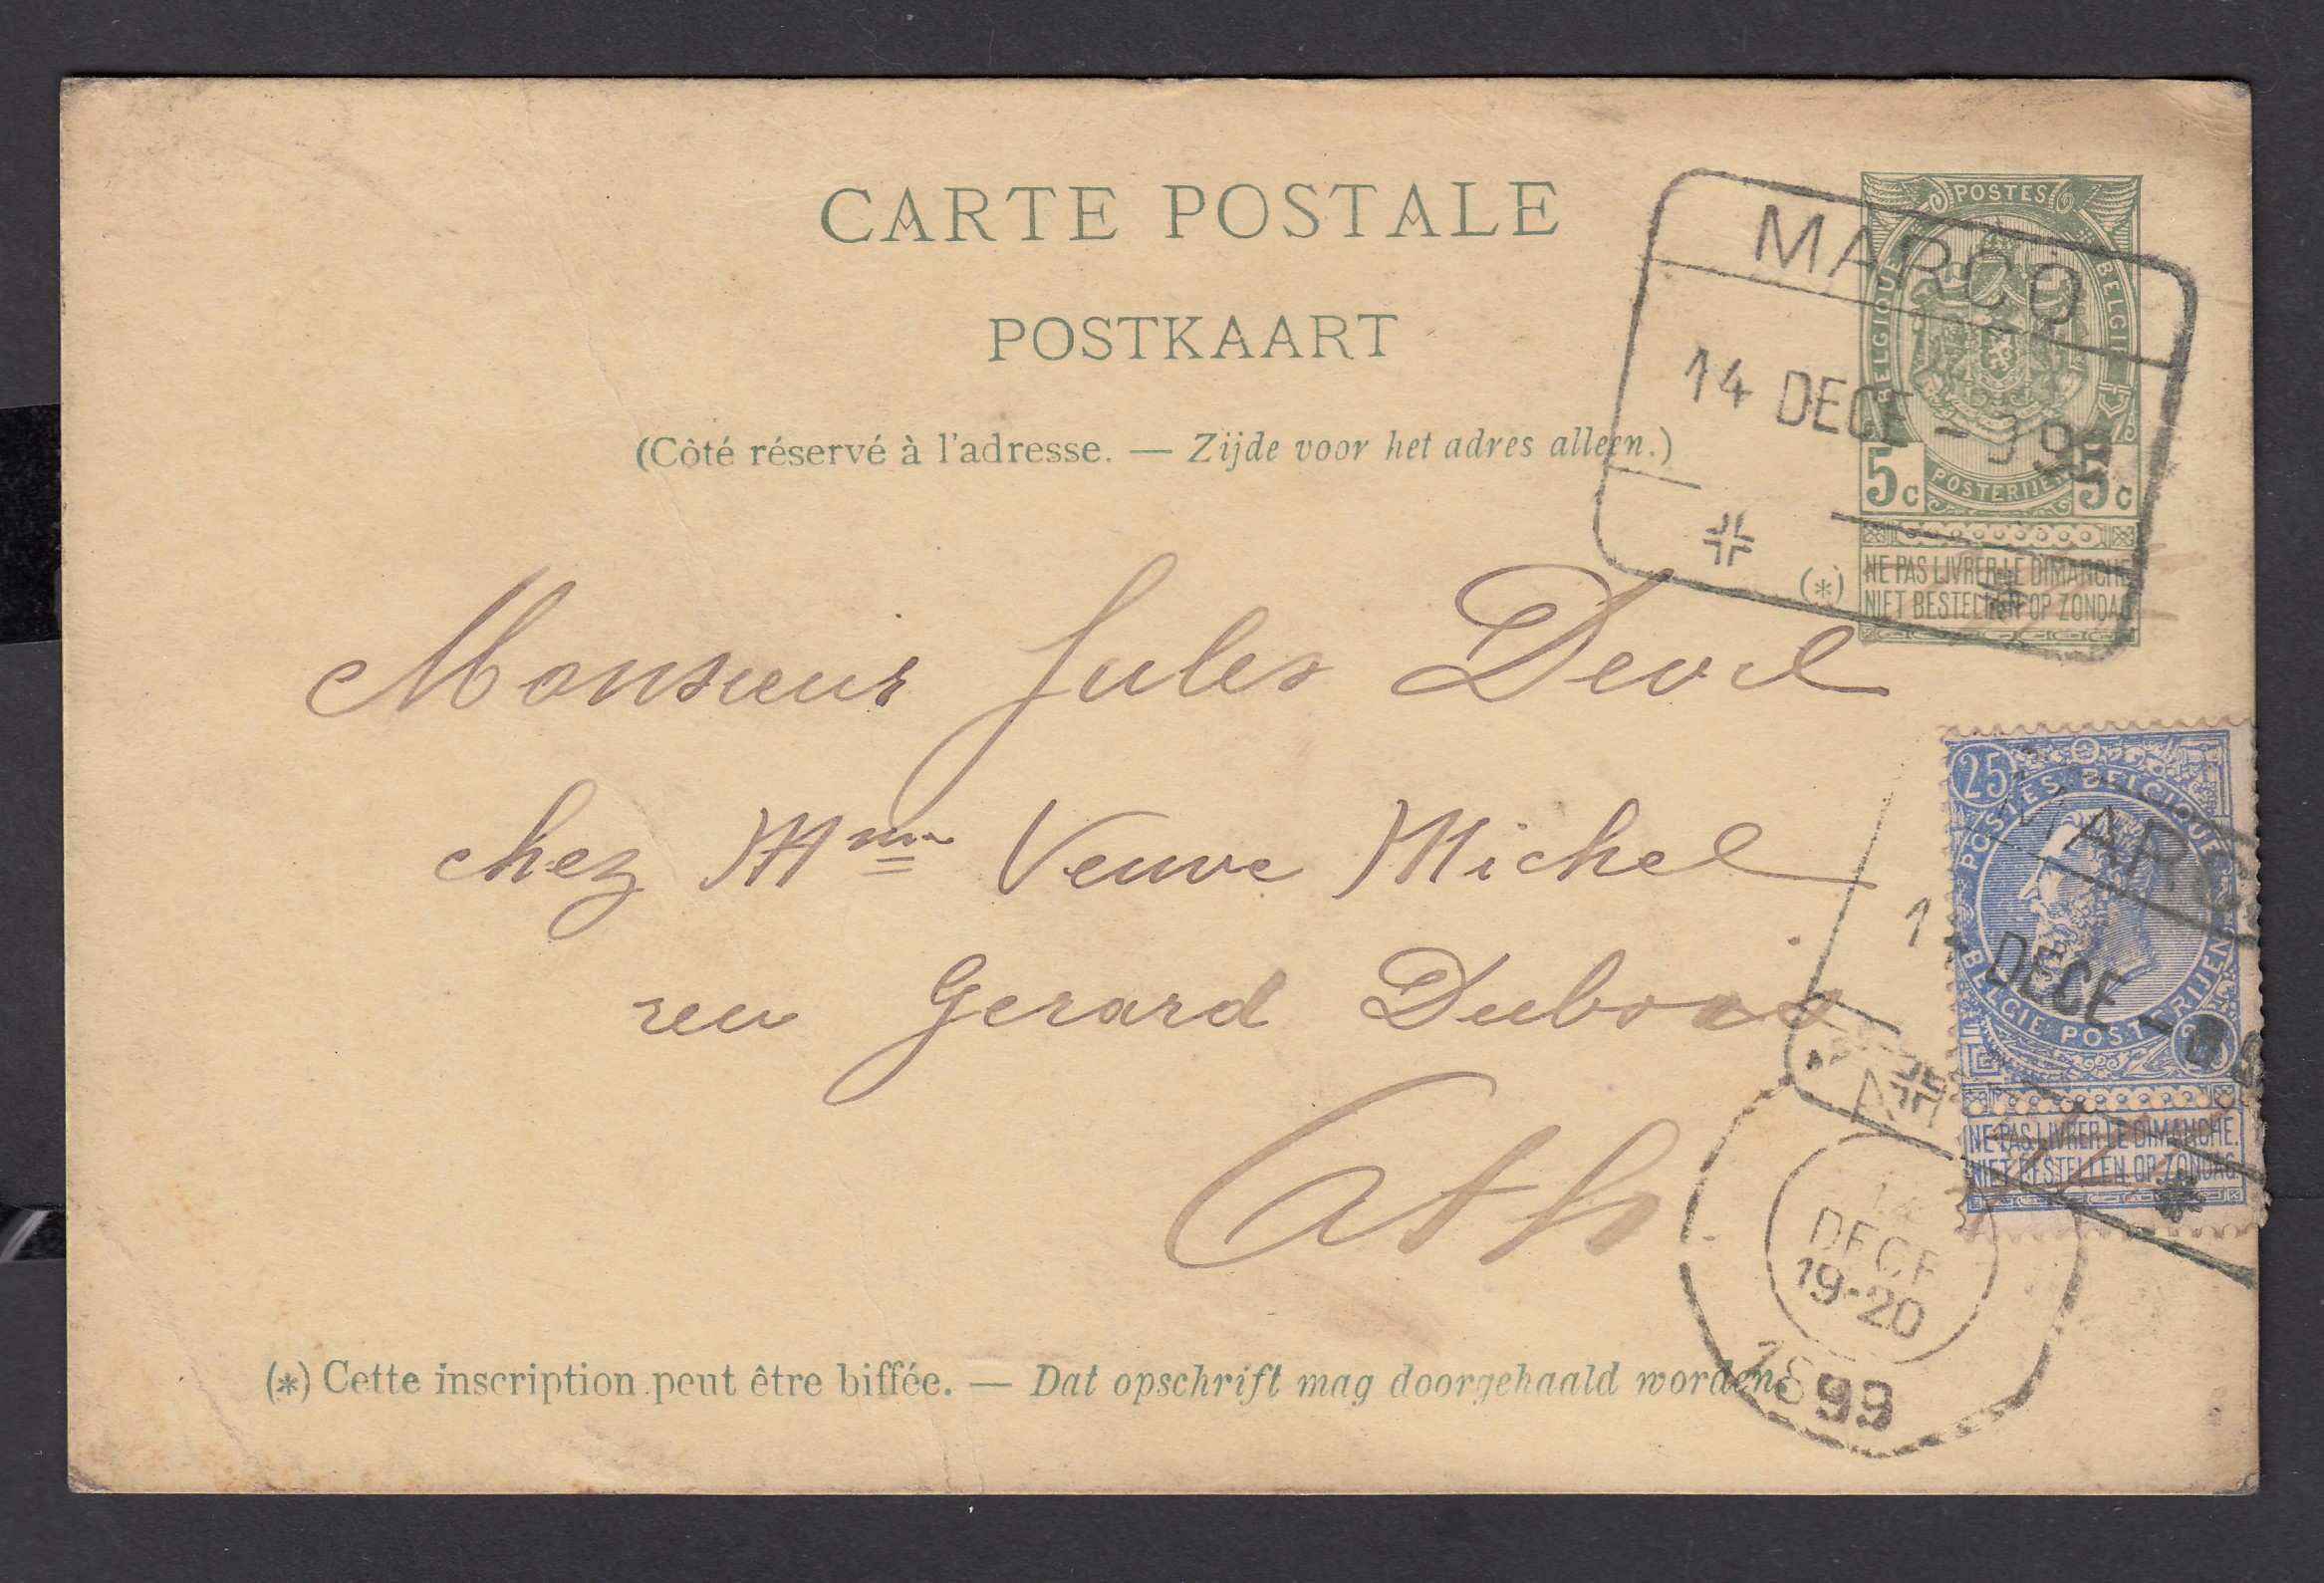 CARTE POSTALE
POSTKAART
(Côté réservé à l'adresse. — Zijde voor het adres alleen.)
POSTES
BELGIQUE
BELGIE
POSTERIJEN
5c 5c
(*) NE PAS LIVRER LE DIMANCHE
NIET BESTELLEN OP ZONDAG
MARCQ
14 DECE - 3 99
Monsieur Jules Devel
chez Mme Veuve Michel
reu Gerard Dubois
Ath
25
POSTES BELGIQUE
BELGIE POSTERIJEN
NE PAS LIVRER LE DIMANCHE.
NIET BESTELLEN OP ZONDAG.
MARC
14 DECE -
DECE
19-20
1899
(*) Cette inscription peut être biffée. — Dat opschrift mag doorgehaald worden.